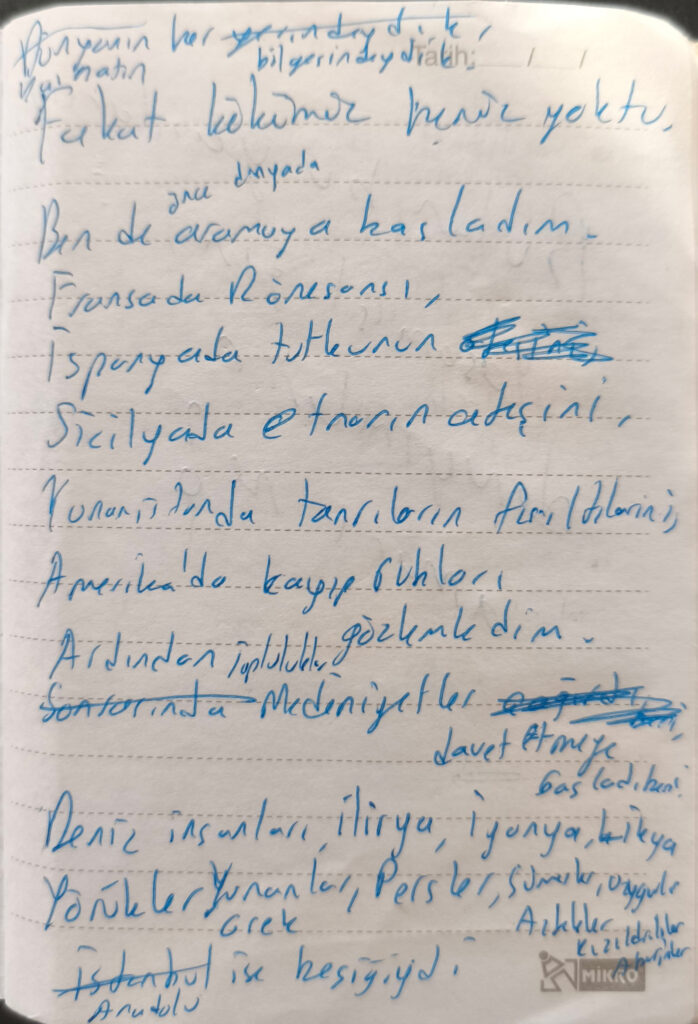 Dünyanın her yerindeydik,
bilgerindeydik. Tarih: / /
hatın
Fakat kökümüz henüz yoktu,
önce dünyada
Ben de aramaya başladım.
Fransada Rönesansı,
İspanyada tutkunun
Sicilyada etnanın ateşini,
Yunanistanda tanrıların fısıltılarını,
Amerika'da kayıp ruhları
gözlemledim.
Ardından topluluklar
Sonrasında Medeniyetler
davet etmeye
başladı beni.
Deniz insanları, İlirya, İyonya, Likya
Yörükler Yunanlar, Persler, Sümerler, Uygurlar
Grek Aztekler
Kızıldrililer
Aborjinler
İstanbul ise beşiğiydi
Anadolu
MİKRO